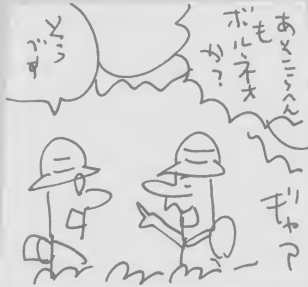 あそこらへん
も
ボルネオ
か?
そう
です
ギャア